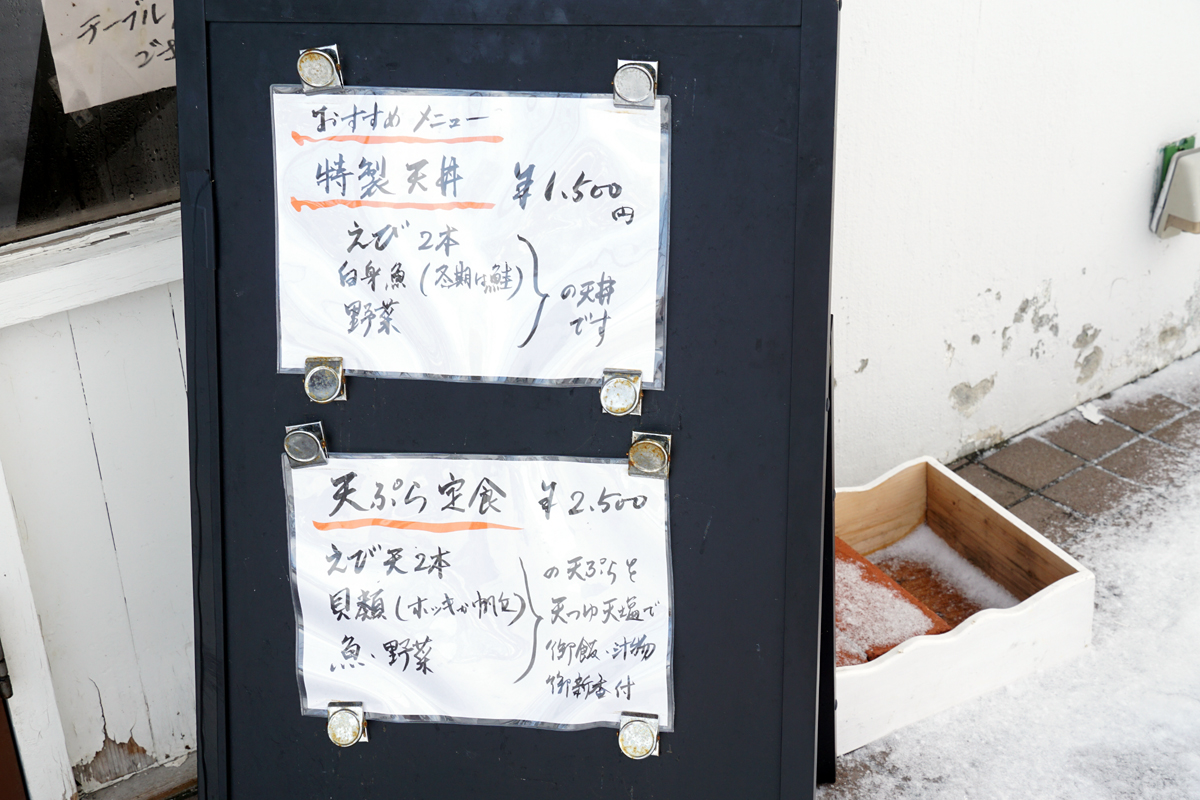 テーブル
おすすめ メニュー
特製天丼 ¥1.500
円
えび 2本
白身魚(冬期は鮭)
野菜
の天丼
です
天ぷら定食 ¥2.500
えび天2本
貝類(ホッキか帆立)
魚・野菜
の天ぷらを
天つゆ天塩で
御飯・汁物
御新香付